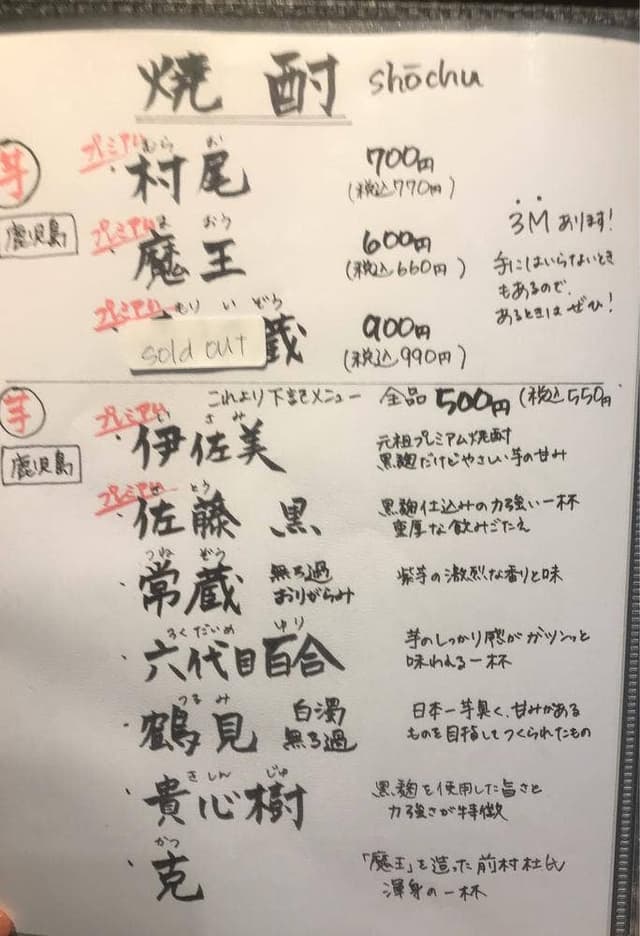 焼酎 shōchu
芋
鹿児島
プレミアム
むら お
村尾
700円
(税込770円)
プレミアム
ま おう
魔王
600円
(税込660円)
3Mあります!
手にはいらないとき
もあるので、
あるときは ぜひ!
プレミアム
もり い ぞう
sold out 蔵
900円
(税込990円)
これより下記メニュー 全品 500円 (税込550円
芋
鹿児島
プレミアム
い さ み
伊佐美
元祖プレミアム焼酎
黒麹だけどやさしい芋の甘み
プレミアム
さ とう
佐藤 黒
黒麹仕込みの力強い一杯
重厚な飲みごたえ
つね ぞう
常蔵 無ろ過
おりがらみ
紫芋の激烈な香りと味
ろくだいめ ゆり
六代目百合
芋のしっかり感がガツンッと
味わえる一杯
つる み
鶴見 白濁
無ろ過
日本一芋臭く、甘みがある
ものを目指してつくられたもの
き しん じゅ
貴心樹
黒麹を使用した旨さと
力強さが特徴
かつ
克
「魔王」を造った前村杜氏
渾身の一杯